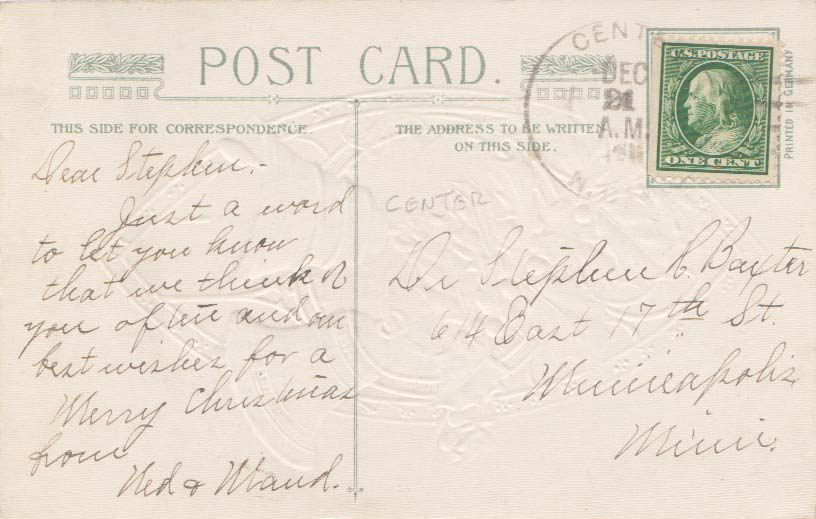 POST CARD.
THIS SIDE FOR CORRESPONDENCE.
THE ADDRESS TO BE WRITTEN
ON THIS SIDE.
CENT
DEC
21
A.M.
U.S. POSTAGE
ONE CENT
PRINTED IN GERMANY
CENTER
Dear Stephen,-
Just a word
to let you know
that we think of
you often and our
best wishes for a
Merry Christmas
from
Ned & Maud.
Dr Stephen H. Baxter
614 East 17th St.
Minneapolis
Minn.